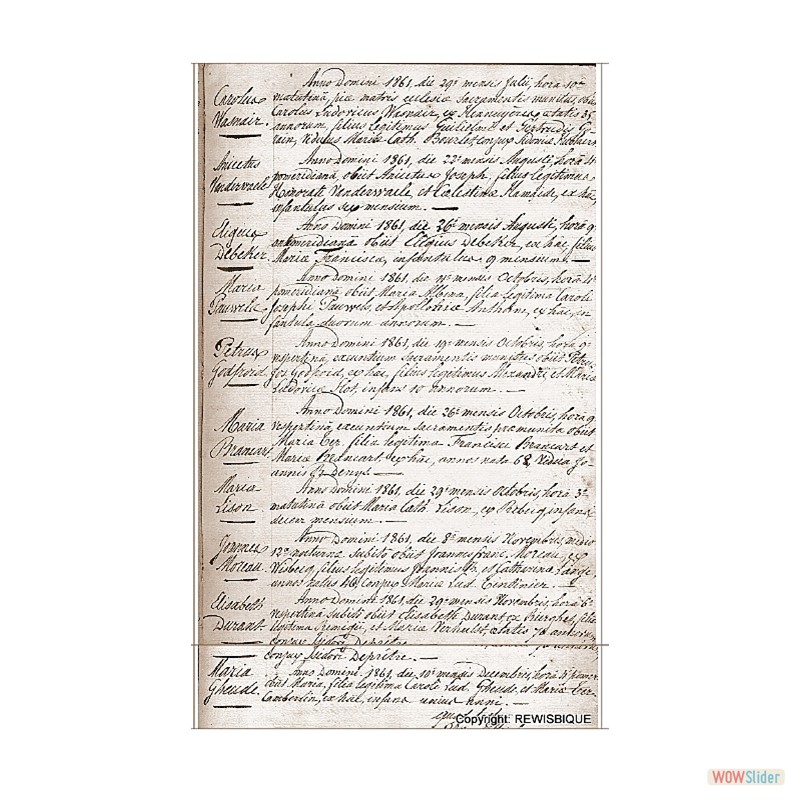 Carolus
Wasnair.
Anno Domini 1861, die 29ª mensis Julii, hora 10ª
matutinâ, piæ matris ecclesiæ Sacramentis munitus, obiit
Carolus Ludovicus Wasnair, ex ætatis 35
annorum, filius legitimus et Gertrudis
viduus Mariæ Cath. conjux
Anicetus
Vanderwaele
Anno Domini 1861, die 22ª mensis Augusti, horâ 4ª
pomeridianâ, obiit Anicetus Joseph, filius legitimus
Honorati Vanderwaele, et Celestinæ Hamaide, ex hac,
infantulus sex mensium.
Eligius
Debeker.
Anno Domini 1861, die 26ª mensis Augusti, horâ 9ª
antemeridianâ obiit Eligius Debeker, ex hac, filius
Mariæ Franciscæ, infantulus 9 mensium.
Maria
Pauwels
Anno Domini 1861, die mensis Octobris, horâ 4ª
pomeridianâ, obiit Maria Albina, filia legitima Caroli
Josephi Pauwels, et Apolloniæ Anthone, ex hac, in-
fantula duorum annorum.
Petrus
Godfroid.
Anno Domini 1861, die 19ª mensis Octobris, horâ 9ª
vespertinâ, exeuntium Sacramentis munitus obiit Petrus
Jos. Godfroid, ex hac, filius legitimus Alexandri, et Mariæ
Ludovicæ Hot, infans 10 annorum.
Maria
Brancart
Anno Domini 1861, die 26ª mensis Octobris, hora 9
vespertinâ, exeuntium Sacramentis præmunita obiit
Maria Ter. filia legitima Francisci Brancart et
Mariæ Brancart, ex hac, annos nata 68, vidua Jo-
annis Bt Denys.
Maria
Lison.
Anno Domini 1861, die 29ª mensis Octobris, horâ 3ª
matutinâ obiit Maria Cath. Lison, ex Rebecq, infans
decem mensium.
Joannes
Moreau
Anno Domini 1861, die 8ª mensis Novembris, mediâ
12ª nocturnâ subito obiit Joannes franc. Moreau, ex
Wisbecq, filius legitimus Joannis B. et Catharinæ
annos natus 46, conjux Mariæ Lud.
Elisabeth
Durant.
Anno Domini 1861, die 29ª mensis Novembris, horâ 6ª
vespertinâ subito obiit Elisabeth Durant, ex filia
legitima Remigii, et Mariæ ætatis 70 annorum
conjux Isidori Deprêtre.
conjux Isidori Deprêtre.
Maria
Gheude.
Anno Domini 1861, die 10ª mensis Decembris, horâ 4ª pomer
obiit Maria, filia legitima Caroli Lud. Gheude et Mariæ Ter.
Camberlin, ex hac, infans unius
quod
Copyright: REWISBIQUE
WOWSlider